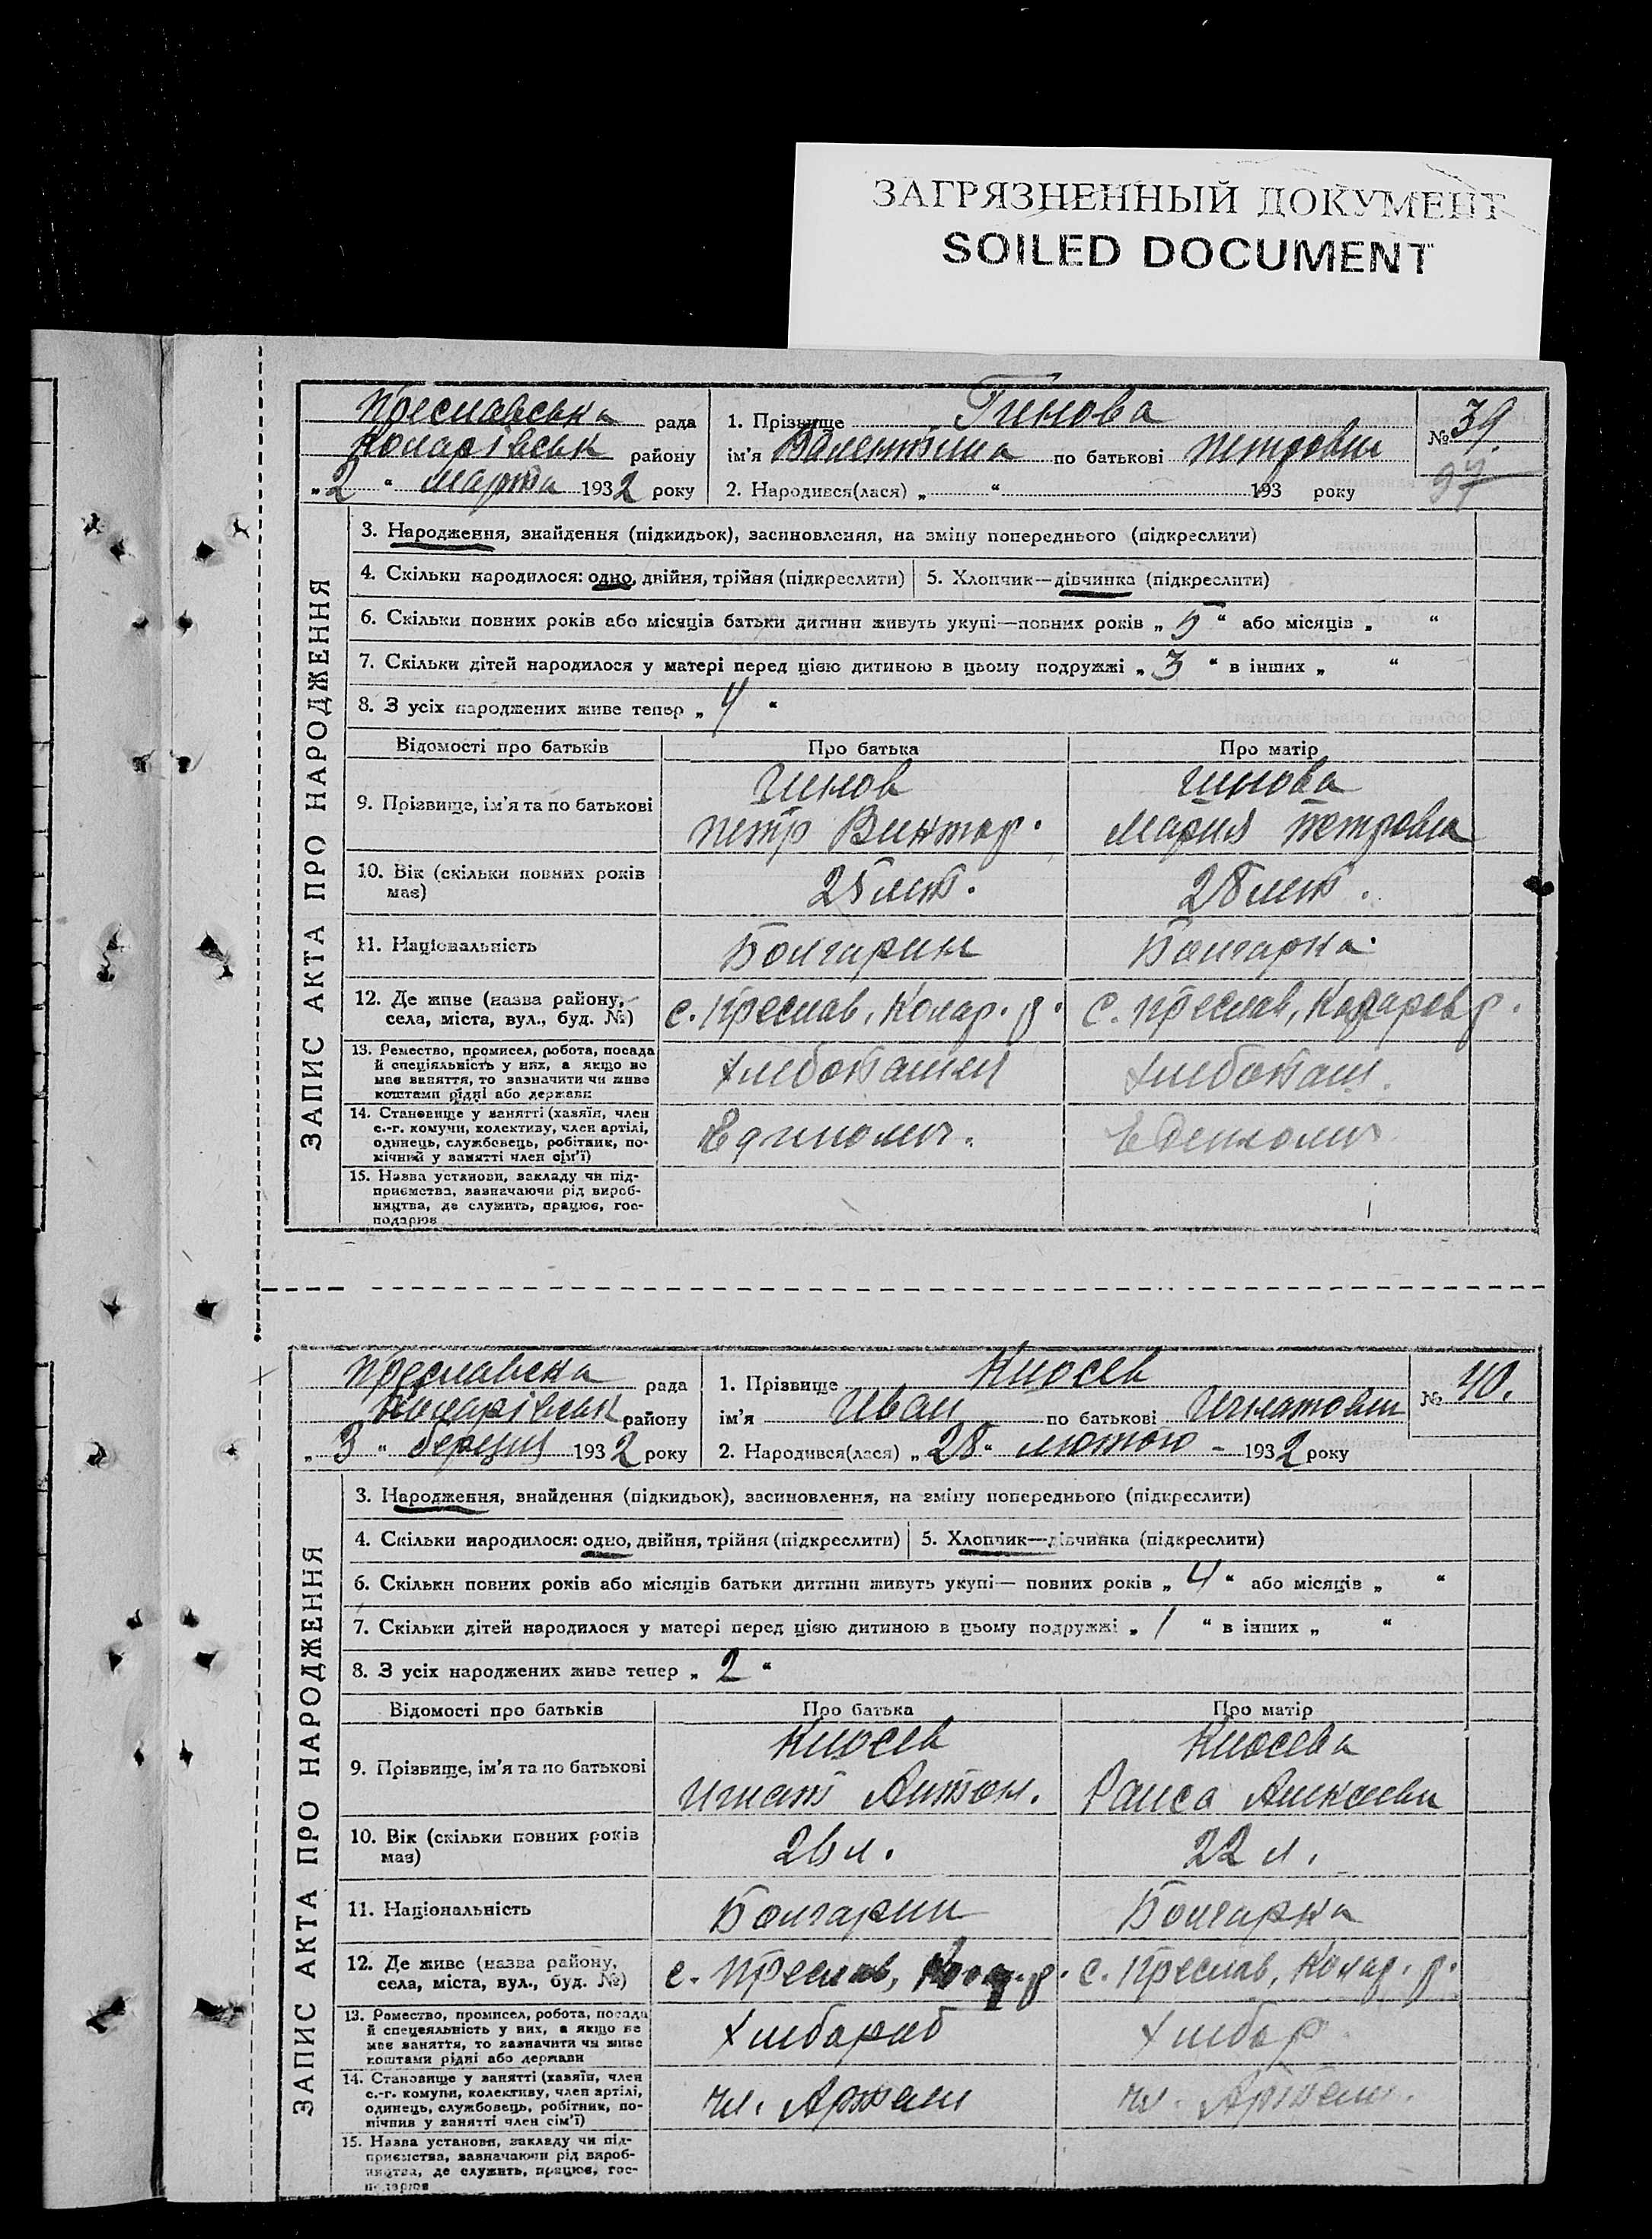 ЗАГРЯЗНЕННЫЙ ДОКУМЕНТ
SOILED DOCUMENT
Преславська рада
Коларівськ району
„2“ марта 1932 року
1. Прізвище Гинова
ім'я Валентина по батькові Петровн
2. Народився(лася) „ “ 193 року
№ 39.
ЗАПИС АКТА ПРО НАРОДЖЕННЯ
3. Народження, знайдення (підкидьок), засиновлення, на зміну попереднього (підкреслити)
4. Скільки народилося: одно, двійня, трійня (підкреслити) 5. Хлопчик—дівчинка (підкреслити)
6. Скільки повних років або місяців батьки дитини живуть укупі—повних років „5“ або місяців „ “
7. Скільки дітей народилося у матері перед цією дитиною в цьому подружжі „3“ в інших „ “
8. З усіх народжених живе тепер „4“
Відомості про батьків Про батька Про матір
9. Прізвище, ім'я та по батькові
Гинов
Петр Виктор.
Гинова
Мария Петровна
10. Вік (скільки повних років має)
25 лет. 28 лет.
11. Національність Болгарин Болгарка
12. Де живе (назва району, села, міста, вул., буд. №)
с. Преслав, Колар. р. с. Преслав, Коларов р.
13. Ремество, промисел, робота, посада
й спеціяльність у них, а якщо не
має заняття, то зазначити чи живе
коштами рідні або держави
Хлебопаш
14. Становище у занятті (хазяїн, член
с.-г. комуни, колективу, член артілі,
одинець, службовець, робітник, по-
мічний у занятті член сім'ї)
Единолич.
15. Назва установи, закладу чи під-
приємства, зазначаючи рід вироб-
ництва, де служить, працює, гос-
подарює
Преславска рада
Коларівськ району
„3“ березня 1932 року
1. Прізвище Киосев
ім'я Иван по батькові Игнатович
2. Народився(лася) „28“ лютого 1932 року
№ 40.
ЗАПИС АКТА ПРО НАРОДЖЕННЯ
3. Народження, знайдення (підкидьок), засиновлення, на зміну попереднього (підкреслити)
4. Скільки народилося: одно, двійня, трійня (підкреслити) 5. Хлопчик—дівчинка (підкреслити)
6. Скільки повних років або місяців батьки дитини живуть укупі— повних років „4“ або місяців „ “
7. Скільки дітей народилося у матері перед цією дитиною в цьому подружжі „1“ в інших „ “
8. З усіх народжених живе тепер „2“
Відомості про батьків Про батька Про матір
9. Прізвище, ім'я та по батькові
Киосев
Игнат Антон.
Киосева
Раиса Алексеевн
10. Вік (скільки повних років має)
26 л. 22 л.
11. Національність Болгарин Болгарка
12. Де живе (назва району, села, міста, вул., буд. №)
с. Преслав, Колар. р. с. Преслав, Колар. р.
13. Ремество, промисел, робота, посада
й спецеяльність у них, а якщо не
має заняття, то зазначити чи живе
коштами рідні або держави
Хлебороб Хлебор
14. Становище у занятті (хазяїн, член
с.-г. комуни, колективу, член артілі,
одинець, службовець, робітник, по-
мічний у занятті член сім'ї)
чл. Артели чл. Артели.
15. Назва установи, закладу чи під-
приємства, зазначаючи рід вироб-
ництва, де служить, працює, гос-
подарює